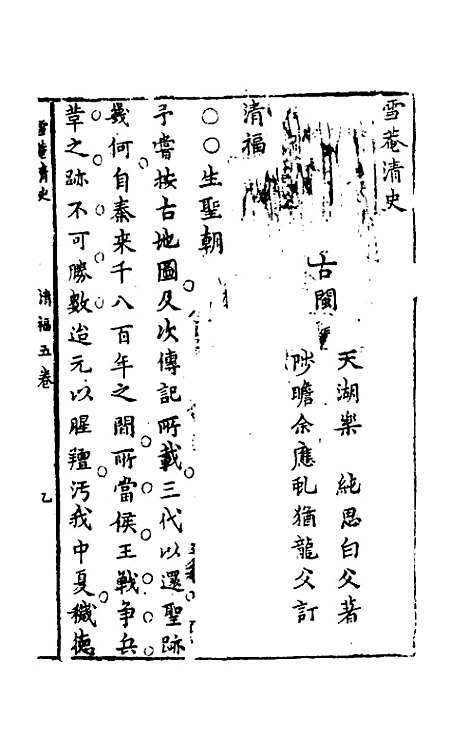 雪菴清史
古閩
天湖樂 純思白父著
陟瞻余應虬猶龍父訂
清福
○○生聖朝
予嘗按古地圖及次傳記所載三代以還聖跡
幾何自秦来千八百年之間所當侯王戰争兵
革之跡不可勝數迨元以腥羶汚我中夏穢德
雪菴清史 清福五卷 乙